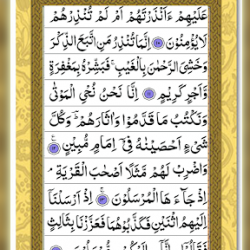 عَلَيْهِمْ ءَاَنْذَرْتَهُمْ اَمْ لَمْ تُنْذِرْهُمْ
لَا يُؤْمِنُوْنَ ۝ اِنَّمَا تُنْذِرُ مَنِ اتَّبَعَ الذِّكْرَ
وَخَشِىَ الرَّحْمٰنَ بِالْغَيْبِ ۚ فَبَشِّرْهُ بِمَغْفِرَةٍ
وَّاَجْرٍ كَرِيْمٍ ۝ اِنَّا نَحْنُ نُحْىِ الْمَوْتٰى
وَنَكْتُبُ مَا قَدَّمُوْا وَاٰثَارَهُمْ ۚ وَكُلَّ
شَىْءٍ اَحْصَيْنٰهُ فِىْٓ اِمَامٍ مُّبِيْنٍ ۝
وَاضْرِبْ لَهُمْ مَّثَلًا اَصْحٰبَ الْقَرْيَةِ ۘ
اِذْ جَآءَهَا الْمُرْسَلُوْنَ ۝ اِذْ اَرْسَلْنَآ
اِلَيْهِمُ اثْنَيْنِ فَكَذَّبُوْهُمَا فَعَزَّزْنَا بِثَالِثٍ